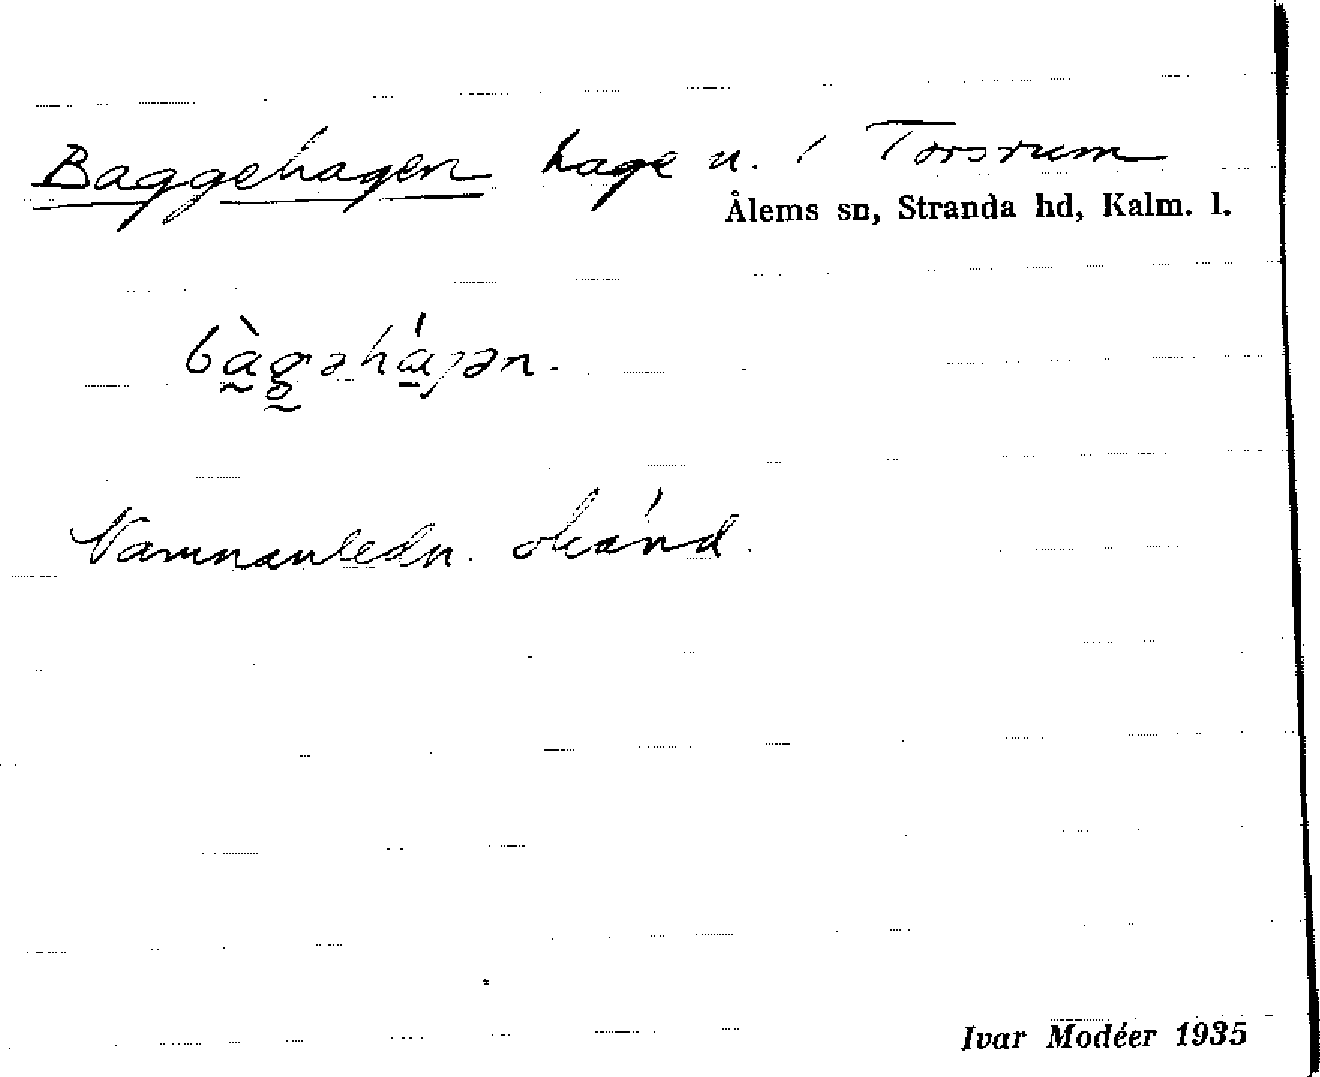 Baggehagen hage n. i Torsrum
Ålems sn, Stranda hd, Kalm. l.
bàgəháɡən.
Namnanledn. okänd.
Ivar Modéer 1935